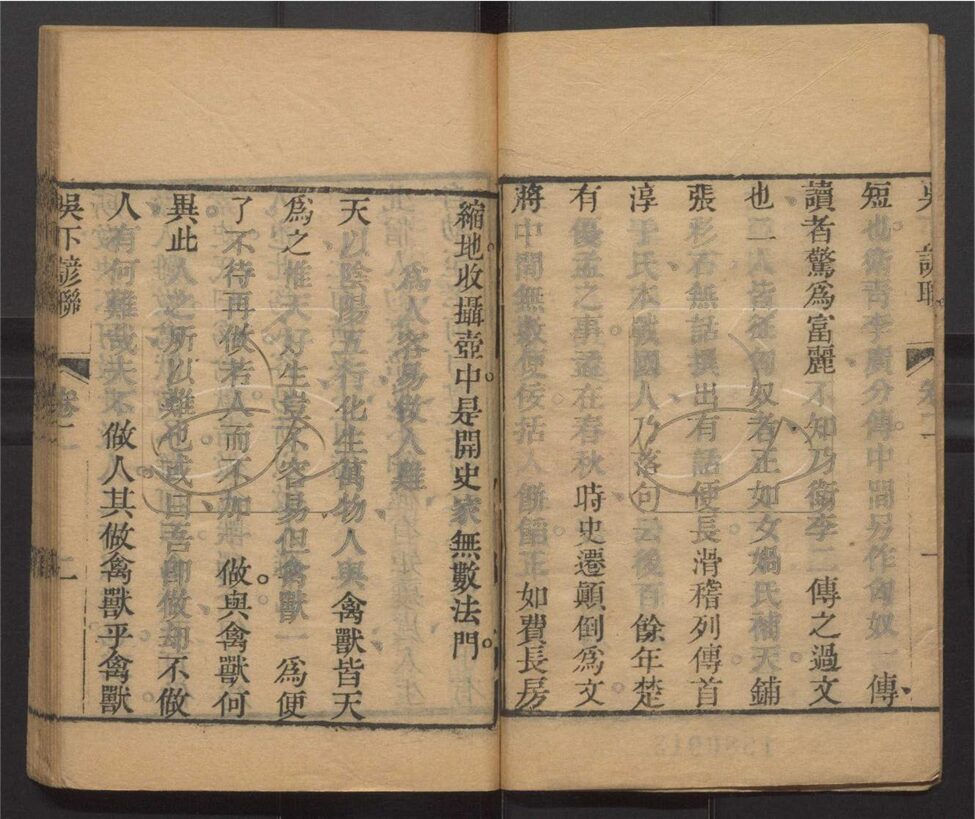 短也衛青李廣分傳中間另作匈奴一傳
讀者驚為富麗不知乃衛李二傳之過文
也二人皆征匈奴者正如女媧氏補天鋪
張彩石無話撰出有話便長滑稽列傳首
淳于氏本戰國人乃落句云後百餘年楚
有優孟之事孟在春秋時史遷顛倒為文
將中間無數便佞括人餅餡正如費長房
縮地收攝壺中是開史家無數法門
為人容易做人難
天以陰陽五行化生萬物人與禽獸皆天
為之惟天好生豈不容易但禽獸一為便
了不待再做若人而不加做與禽獸何
異此人之所以難也或曰吾卽做却不做
人有何難哉夫不做人其做禽獸乎禽獸
吳下諺聯
卷二
一